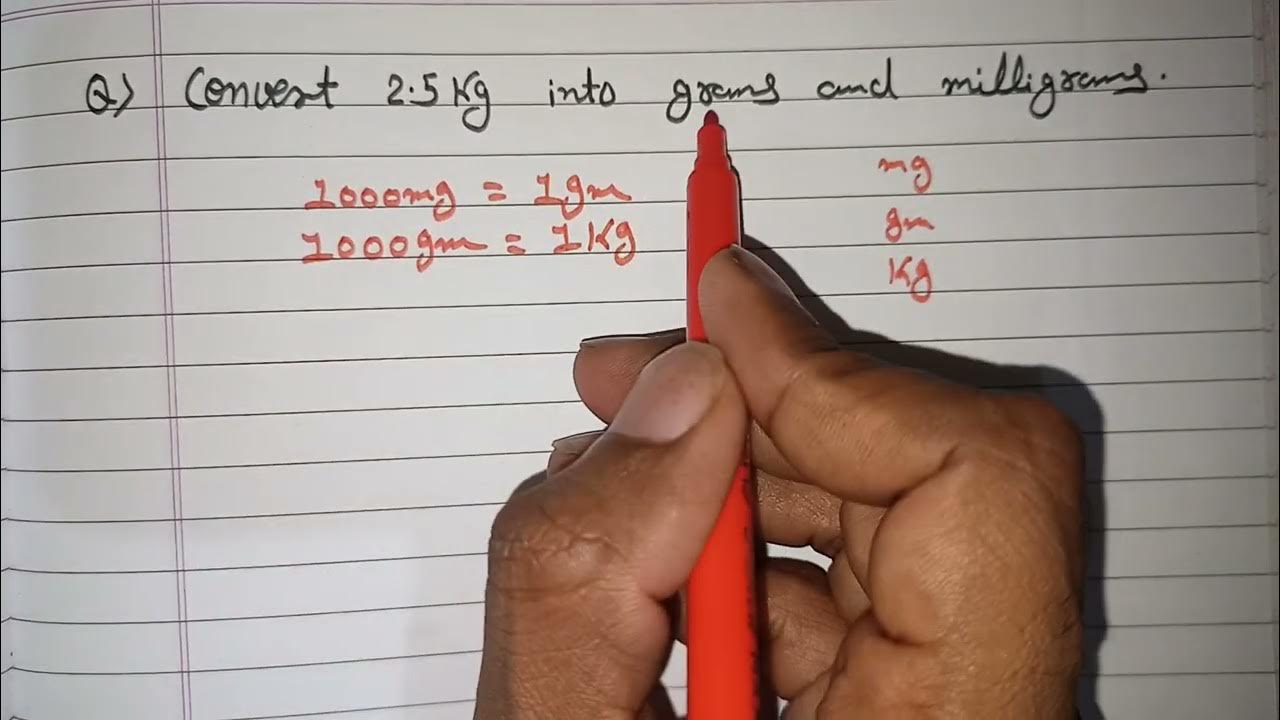 Q) Convert 2.5 Kg into grams and milligrams.
1000mg = 1gm
1000gm = 1Kg
mg
gm
Kg